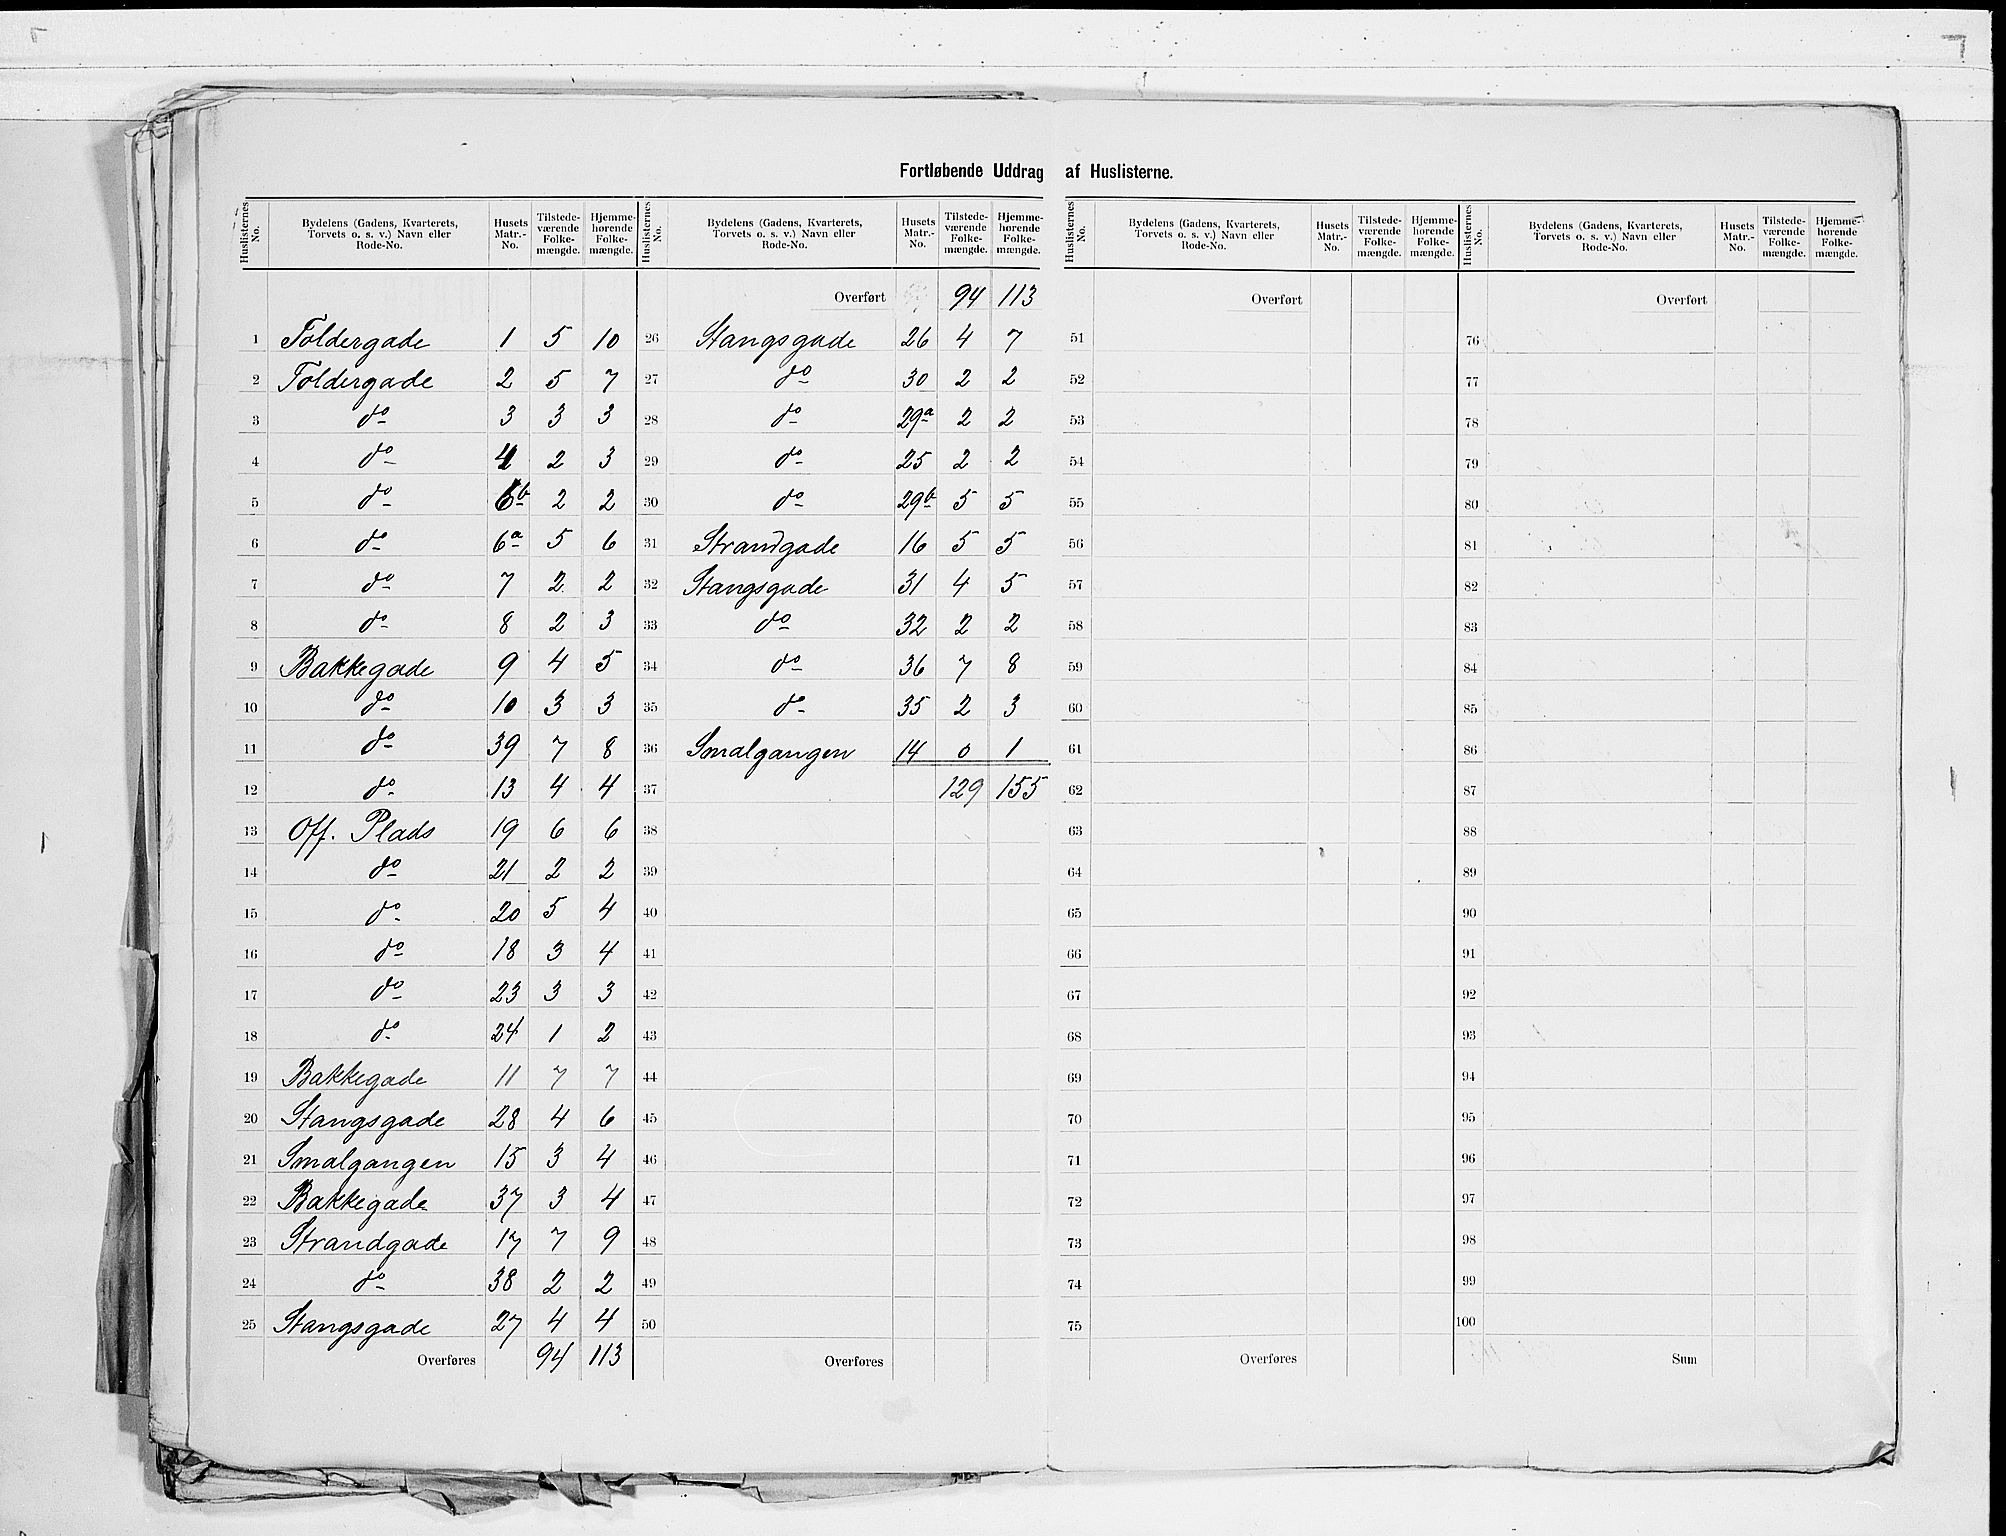 Fortløbende Uddrag af Huslisterne.
Huslisternes No. Bydelens (Gadens, Kvarterets, Torvets o. s. v.) Navn eller Rode-No. Husets Matr.-No. Tilstedeværende Folkemængde. Hjemmehørende Folkemængde.
1 Toldergade 1 5 10
2 Toldergade 2 5 7
3 do 3 3 3
4 do 4 2 3
5 do 6b 2 2
6 do 6a 5 6
7 do 7 2 2
8 do 8 2 3
9 Bakkegade 9 4 5
10 do 10 3 3
11 do 39 7 8
12 do 13 4 4
13 Off. Plads 19 6 6
14 do 21 2 2
15 do 20 5 4
16 do 18 3 4
17 do 23 3 3
18 do 24 1 2
19 Bakkegade 11 7 7
20 Stangsgade 28 4 6
21 Smalgangen 15 3 4
22 Bakkegade 37 3 4
23 Strandgade 17 7 9
24 do 38 2 2
25 Stangsgade 27 4 4
Overføres 94 113
Huslisternes No. Bydelens (Gadens, Kvarterets, Torvets o. s. v.) Navn eller Rode-No. Husets Matr.-No. Tilstedeværende Folkemængde. Hjemmehørende Folkemængde.
Overført 94 113
26 Stangsgade 26 4 7
27 do 30 2 2
28 do 29a 2 2
29 do 25 2 2
30 do 29b 5 5
31 Strandgade 16 5 5
32 Stangsgade 31 4 5
33 do 32 2 2
34 do 36 7 8
35 do 35 2 3
36 Smalgangen 14 0 1
37 129 155
38
39
40
41
42
43
44
45
46
47
48
49
50
Overføres
Huslisternes No. Bydelens (Gadens, Kvarterets, Torvets o. s. v.) Navn eller Rode-No. Husets Matr.-No. Tilstedeværende Folkemængde. Hjemmehørende Folkemængde.
Overført
51
52
53
54
55
56
57
58
59
60
61
62
63
64
65
66
67
68
69
70
71
72
73
74
75
Overføres
Huslisternes No. Bydelens (Gadens, Kvarterets, Torvets o. s. v.) Navn eller Rode-No. Husets Matr.-No. Tilstedeværende Folkemængde. Hjemmehørende Folkemængde.
Overført
76
77
78
79
80
81
82
83
84
85
86
87
88
89
90
91
92
93
94
95
96
97
98
99
100
Sum